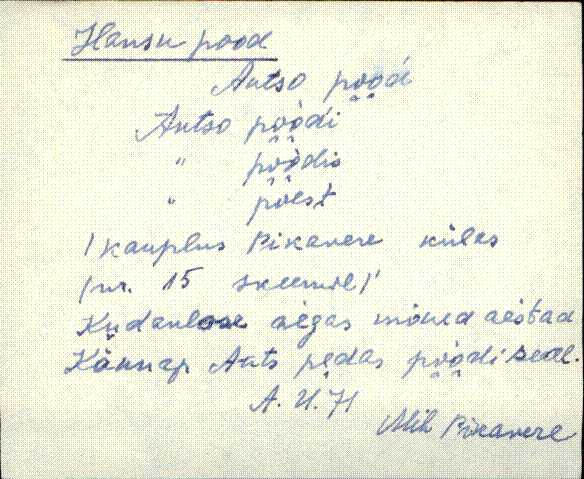 Hansu pood
Antso po̭o̭d́
Antso po̭o̭d́i
" po̭o̭dis
" po̭est
/ kauplus Pikavere külas
(nr. 15 skeemil)/
Kudanlose aégas mõned aéstad
Kännap Ants pedas po̭o̭di seal.
A. U. 71
Mih Pikavere